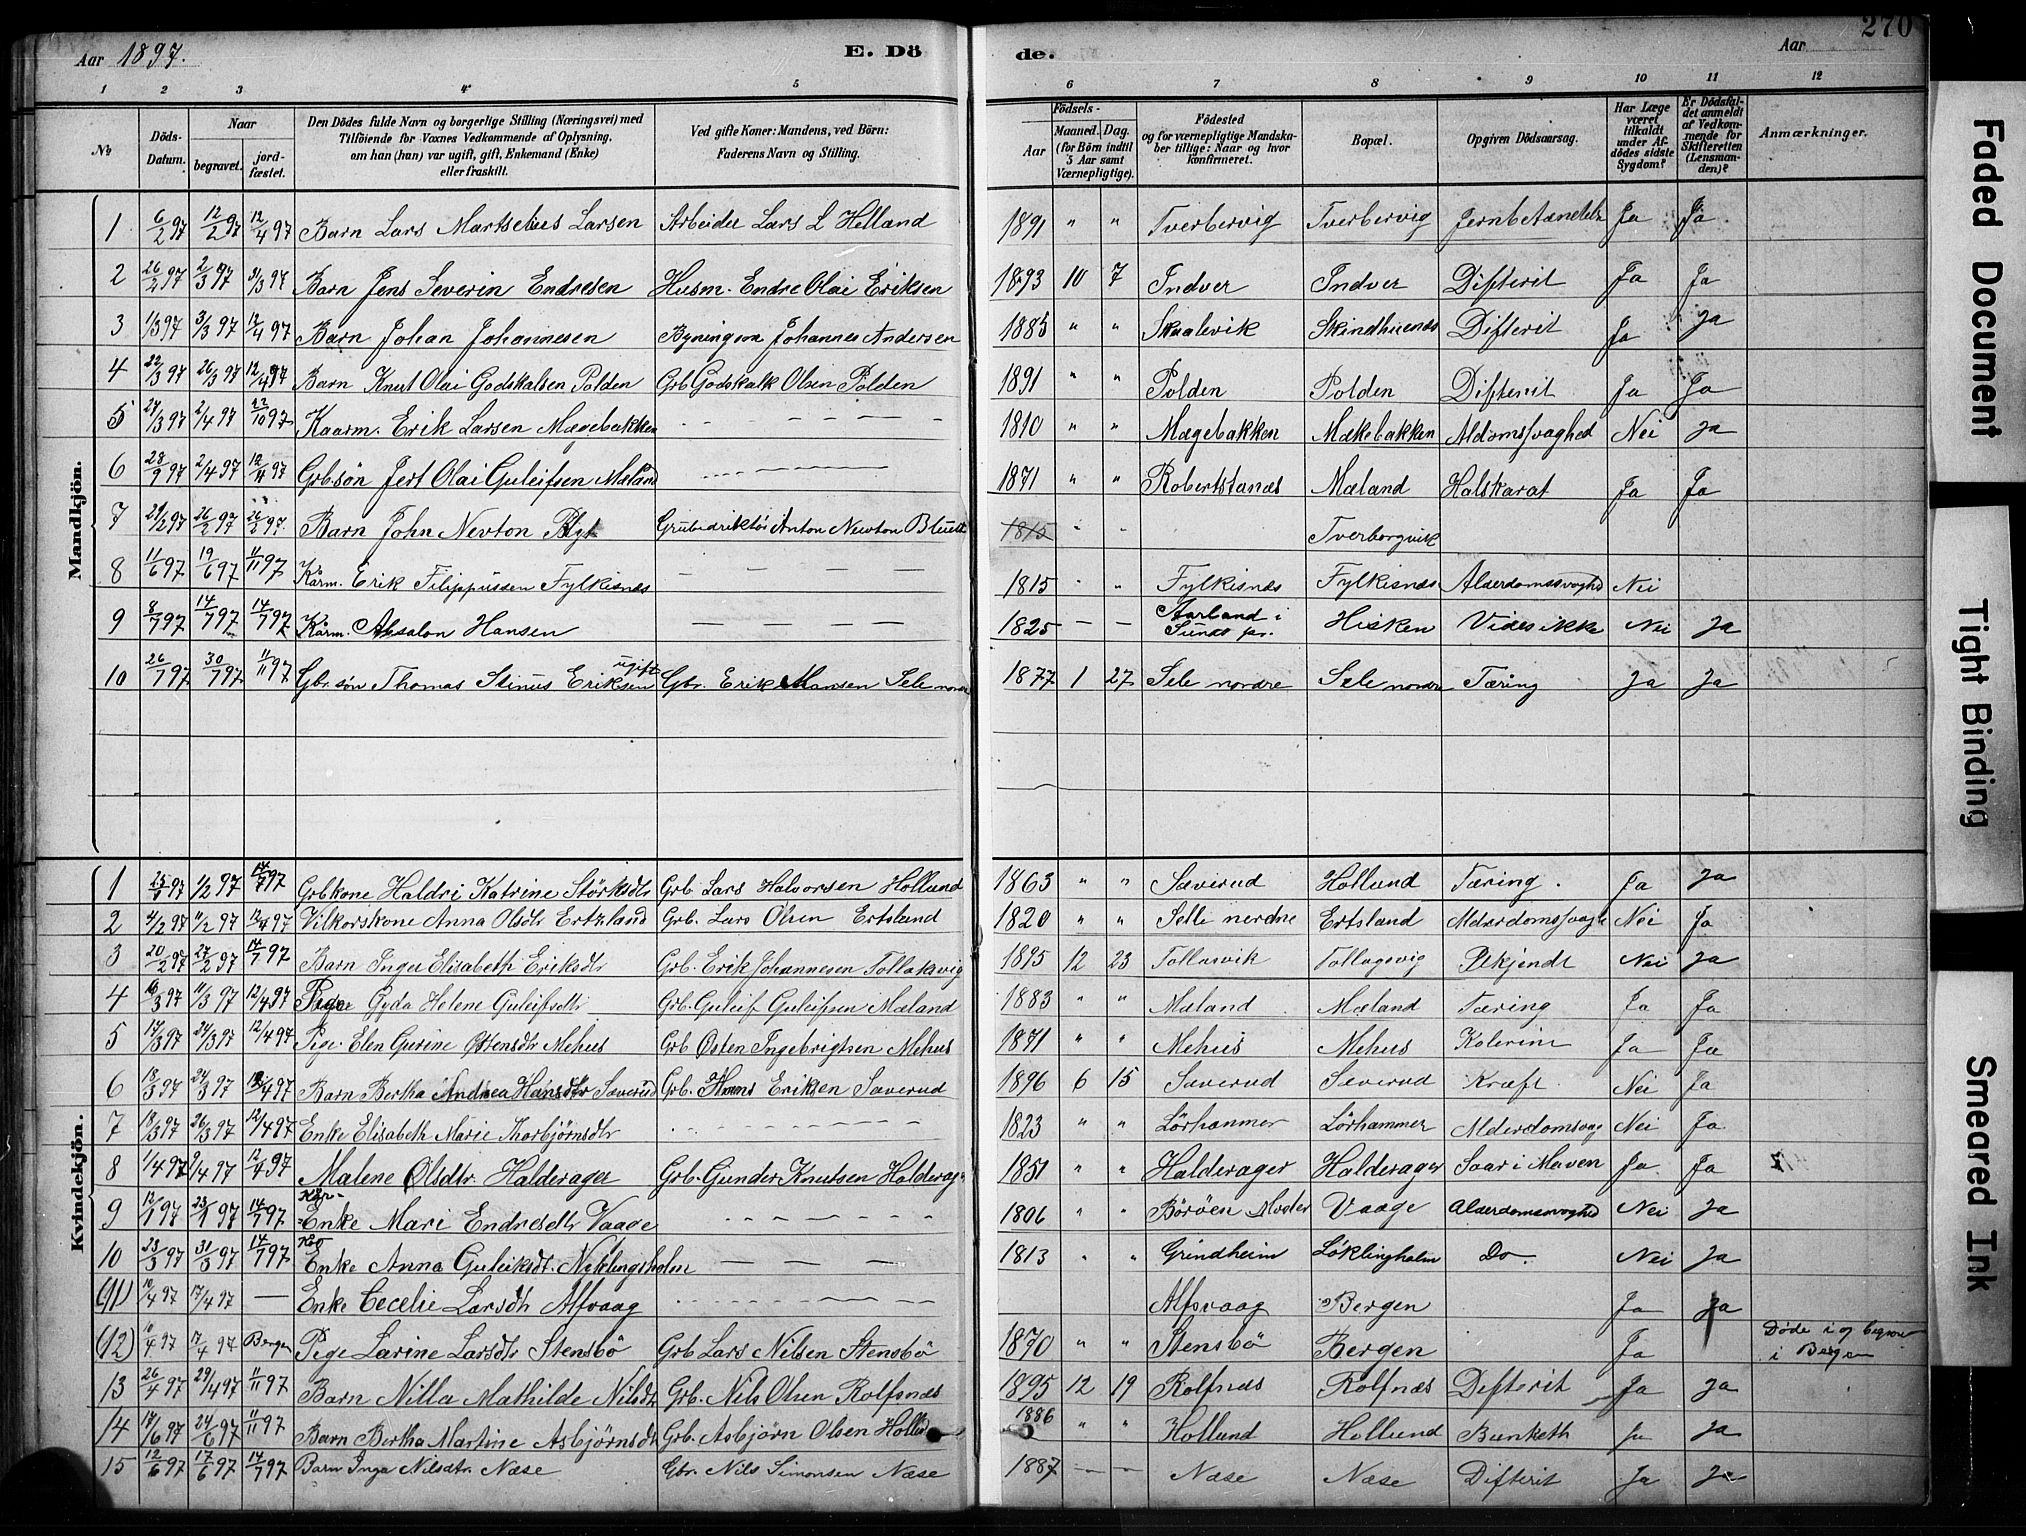 Aar 1897. E. Dö de. Aar 270
1 2 3 4 5 6 7 8 9 10 11 12
№ Döds-Datum. Naar begravet. jordfæstet. Den Dödes fulde Navn og borgerlige Stilling (Næringsvei) med Tilföiende for Voxnes Vedkommende af Oplysning, om han (hun) var ugift, gift, Enkemand (Enke) eller fraskilt. Ved gifte Koner: Mandens, ved Börn: Faderens Navn og Stilling. Födsels- Aar Maaned. Dag. (for Börn indtil 5 Aar samt Værnepligtige). Födested og for værnepligtige Mandskaber tillige: Naar og hvor konfirmeret. Bopæl. Opgiven Dödsaarsag. Har Læge været tilkaldt under Afdödes sidste Sygdom? Er Dödsfaldet anmeldt af Vedkommende for Skifteretten (Lensmanden)? Anmærkninger.
Mandkjön.
1 6/2 97 12/2 97 12/4 97 Barn Lars Martselius Larsen Arbeider Lars L Helland 1891 " " Tverbervig Tverbervig Ja Ja
2 26/2 97 2/3 97 31/3 97 Barn Jens Severin Endresen Husm. Endre Olai Eriksen 1893 10 7 Indver Indver Difterit Ja Ja
3 1/3 97 3/3 97 12/4 97 Barn Johan Johannesen Johannes Andersen 1885 " " Skaalevik Difterit Ja Ja
4 22/3 97 26/3 97 12/4 97 Barn Knut Olai Godskalsen Polden Grb Godskalk Olsen Polden 1891 " " Polden Polden Difterit Ja Ja
5 27/3 97 2/4 97 22/10 97 Kaarm. Erik Larsen Mægebakken - - - - 1810 " " Mægebakken Mækebakken Aldomssvaghed Nei Ja
6 28/9 97 2/4 97 12/4 97 Grb.søn Jert Olai Guleifsen Mæland - - - - 1871 " " Robertstanæs Mæland Halskarat Ja Ja
7 26/2 97 Barn John Nevton Anton Newton Bluett 1815 " " Tverborgvik
8 11/6 97 19/6 97 11/11 97 Kårm. Erik Filippussen Fylkisnæs — — — — 1815 " " Fylkisnæs Fylkisnæs Alderdomssvaghd Nei
9 8/7 97 14/7 97 14/7 97 Kårm. Absalon Hansen — — — — 1825 — — Aarland i Hisken Vides ikke Nei Ja
10 26/7 97 30/7 97 11/11 97 Gbr.søn Thomas Stinus Eriksen ugift Gbr. Erik Mansen Sele nordre 1877 1 27 Sele nordre Sele nordre Tæring Ja Ja
Kvindekjön.
1 25/1 97 1/2 97 14/7 97 Grbkone Haldri Katrine Störksdtr Grb. Lars Halvorsen Hollund 1863 " " Sæverud Hollund Tæring. Ja Ja
2 4/2 97 11/2 97 12/4 97 Vilkorskone Anna Olsdtr Ertzland Grb. Lars Olsen Ertsland 1820 " " Selle nordre Ertsland Alderdomssvaghe Nei Ja
3 20/2 97 27/2 97 14/7 97 Barn Inger Elisabeth Eriksdtr Grb. Erik Johannesen Tollaksvig 1895 12 23 Tollagsvig Ukjendt Nei Ja
4 6/3 97 11/3 97 12/4 97 Pige Gyda Helene Guleifsdtr Grb. Guleif Guleifsen Mæland 1883 " " Mæland Mæland Tæring Ja Ja
5 17/3 97 24/3 97 12/4 97 Pige. Elen Gurine Østensdtr Mehus Grb Østen Ingebrigtsen Mehus 1871 " " Mehus Mehus Kolerine Ja Ja
6 18/3 97 24/3 97 12/4 97 Barn Bertha Andrea Hansdtr Sæverud Grb. Hans Eriksen Sæverud 1896 6 15 Sæverud Sæverud Kræft Nei Ja
7 18/3 97 26/3 97 12/4 97 Enke Elisabeth Marie Thorbjørnsdtr - - - - 1823 " " Lörhammer Lörhammer Alderdomsvag Nei Ja
8 1/4 97 9/4 97 12/4 97 Malene Olsdtr. Halderager Grb. Gunder Knutsen Halderag 1851 " " Halderager Halderager Saar i Maven Ja Ja
9 12/1 97 23/1 97 14/7 97 Enke Mari Endresdtr Vaage - - - - 1806 " " Börøen Moster Vaage Alderdomssvaghed Nei Ja
10 23/3 97 31/3 97 14/7 97 Enke Anna Guleiksdt. Nyklingsholm — — — 1813 " " Grindheim Løklingholm Do. Nei Ja
(11) 10/4 97 17/4 97 — Enke Cecelie Larsdtr Alfvaag - - - - Alfsvaag Bergen Ja Ja
(12) 10/4 97 17/4 97 Bergen Pige Larine Larsdtr Stensbö Grb Lars Nilsen Stensbö 1870 " " Stensbö Bergen Ja Døde i og begravet i Bergen
13 26/4 97 29/4 97 11/11 97 Barn Nilla Mathilde Nilsdtr Grb. Nils Olsen Rolfsnæs 1895 12 19 Rolfnæs Rolfnæs Difterit Ja Ja
14 17/6 97 24/6 97 11/11 97 Barn Bertha Martine Asbjørnsdtr Grb. Asbjørn Olsen Hollund 1886 " " Hollund Hollund Ja Ja
15 12/6 97 17/6 97 14/7 97 Barn Inga Nilsdtr. Næse Gbr. Nils Simonsen Næse 1887 — — Næse Næse Difterit Ja Ja
Faded Document
Tight Binding
Smeared Ink